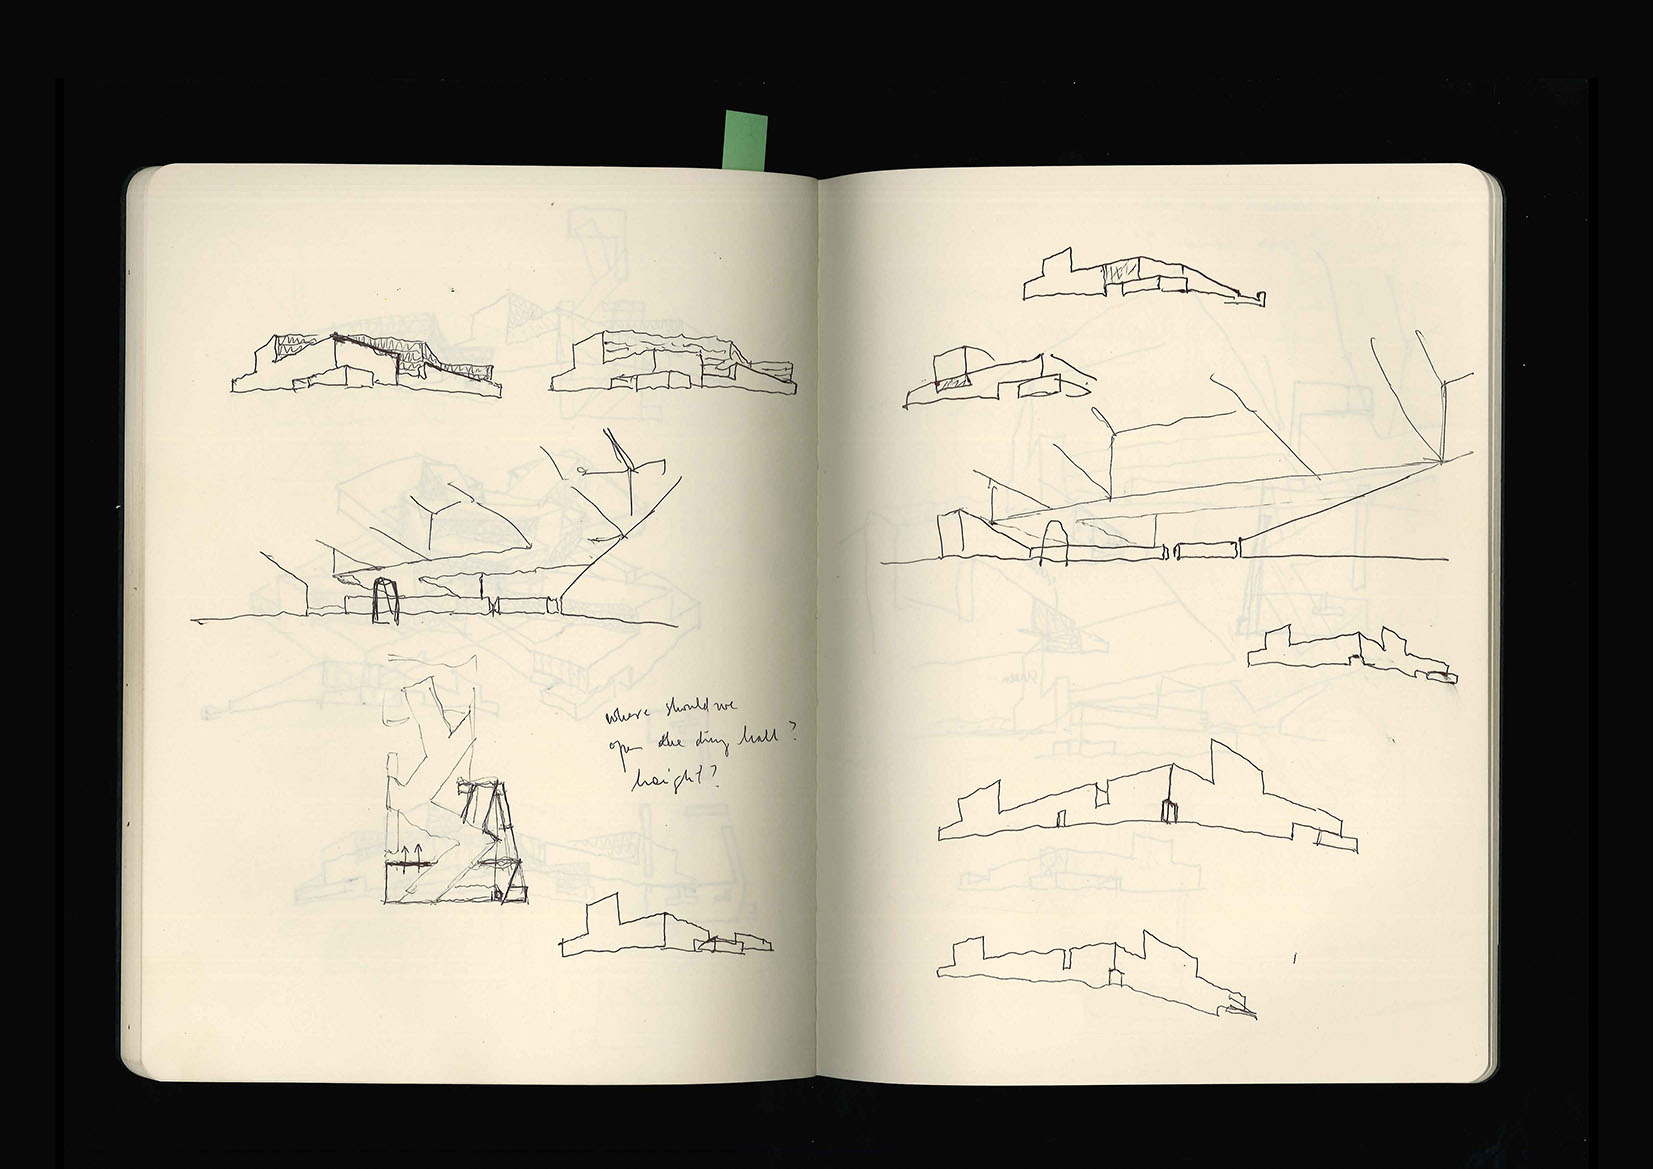 where should we
open the dining hall?
height?